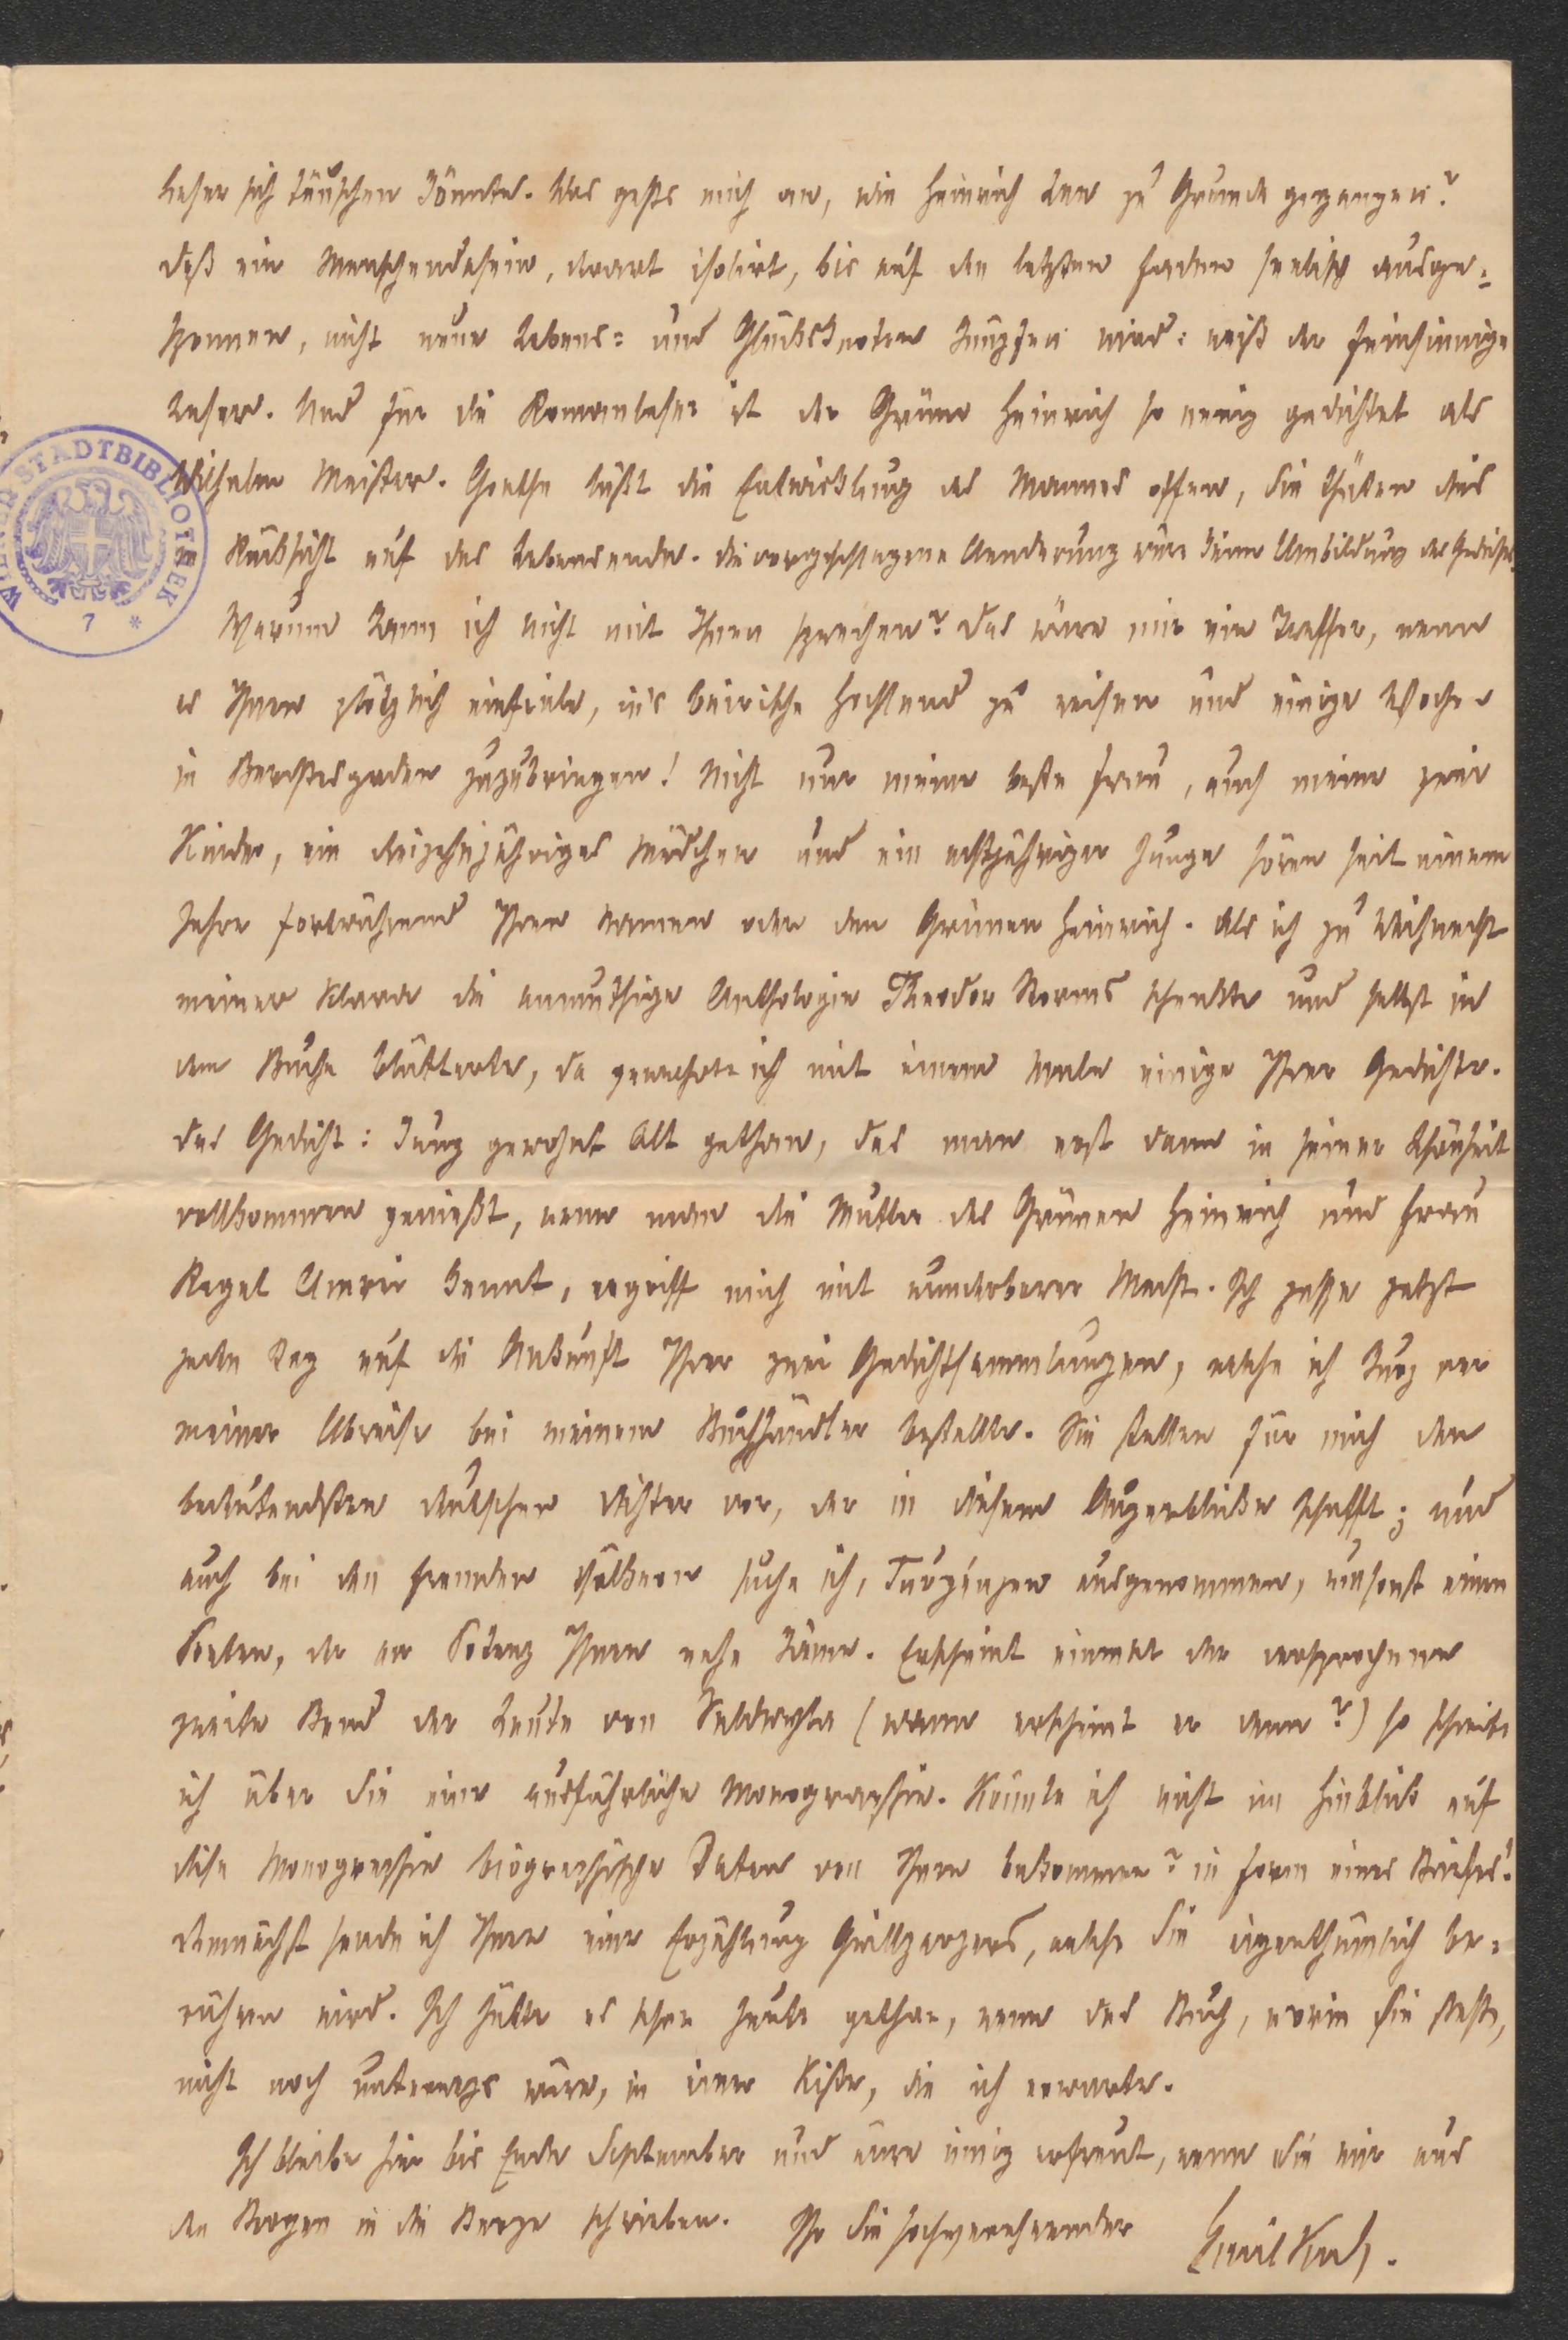 Leser sich täuschen könnte. Was geht's mich an, wie Heinrich Lee zu Grunde gegangen?
Daß ein Menschendasein, derart isolirt, bis auf den letzten Faden seelisch ausge-
sponnen, nicht neue Lebens- und Glücksknoten knüpfen wird: weiß der feinsinnige
Leser. Und für die Romanleser ist der Grüne Heinrich so wenig gedichtet als
Wilhelm Meister. Goethe läßt die Entwicklung des Mannes offen, Sie thäten dies
in Rücksicht auf das Lebensende. Die vorgeschlagene Aenderung wäre keine Umbildung des Gedichtes.
Warum kann ich nicht mit Ihnen sprechen? Das wäre mir ein Treffer, wenn
es Ihnen plötzlich einfiele, in's bairische Hochland zu reisen und einige Wochen
in Berchtesgaden zuzubringen! Nicht nur meine beste Frau, auch meine zwei
Kinder, ein dreizehnjähriges Mädchen und ein achtjähriger Junge hören seit einem
Jahre fortwährend Ihren Namen oder den Grünen Heinrich. Als ich zu Weihnacht
meiner Klara die anmuthige Anthologie Theodor Storms schenkte und selbst in
dem Buche blätterte, da gewahrte ich mit einem Male einige Ihrer Gedichte.
Das Gedicht: Jung gewohnt Alt gethan, das man erst dann in seiner Schönheit
vollkommen genießt, wenn man die Mutter des Grünen Heinrich und Frau
Regel Amrain kennt, ergriff mich mit wunderbarer Macht. Ich passe jetzt
jeden Tag auf die Ankunft Ihrer zwei Gedichtsammlungen, welche ich kurz vor
meiner Abreise bei meinem Buchhändler bestellte. Sie stellen für mich den
bedeutendsten deutschen Dichter vor, der in diesem Augenblicke schafft; und
auch bei den fremden Völkern suche ich, Turgénjew ausgenommen, umsonst einen
Poeten, der an Potenz Ihnen nahe käme. Erscheint einmal der versprochene
zweite Band der Leute von Seldwyla (wann erscheint er denn?) so schreibe
ich über Sie eine ausführliche Monographie. Könnte ich nicht im Hinblick auf
diese Monographie biographische Daten von Ihnen bekommen? in Form eines Briefes?
Demnächst sende ich Ihnen eine Erzählung Grillparzers, welche Sie eigenthümlich be-
rühren wird. Ich hätte es schon heute gethan, wenn das Buch, worin sie steht,
nicht noch unterwegs wäre, in einer Kiste, die ich erwarte.
Ich bleibe hier bis Ende September und wäre innig erfreut, wenn Sie mir aus
den Bergen in die Berge schrieben. Ihr Sie hochverehrender
Emil Kuh.
WIENER STADTBIBLIOTHEK
7 *